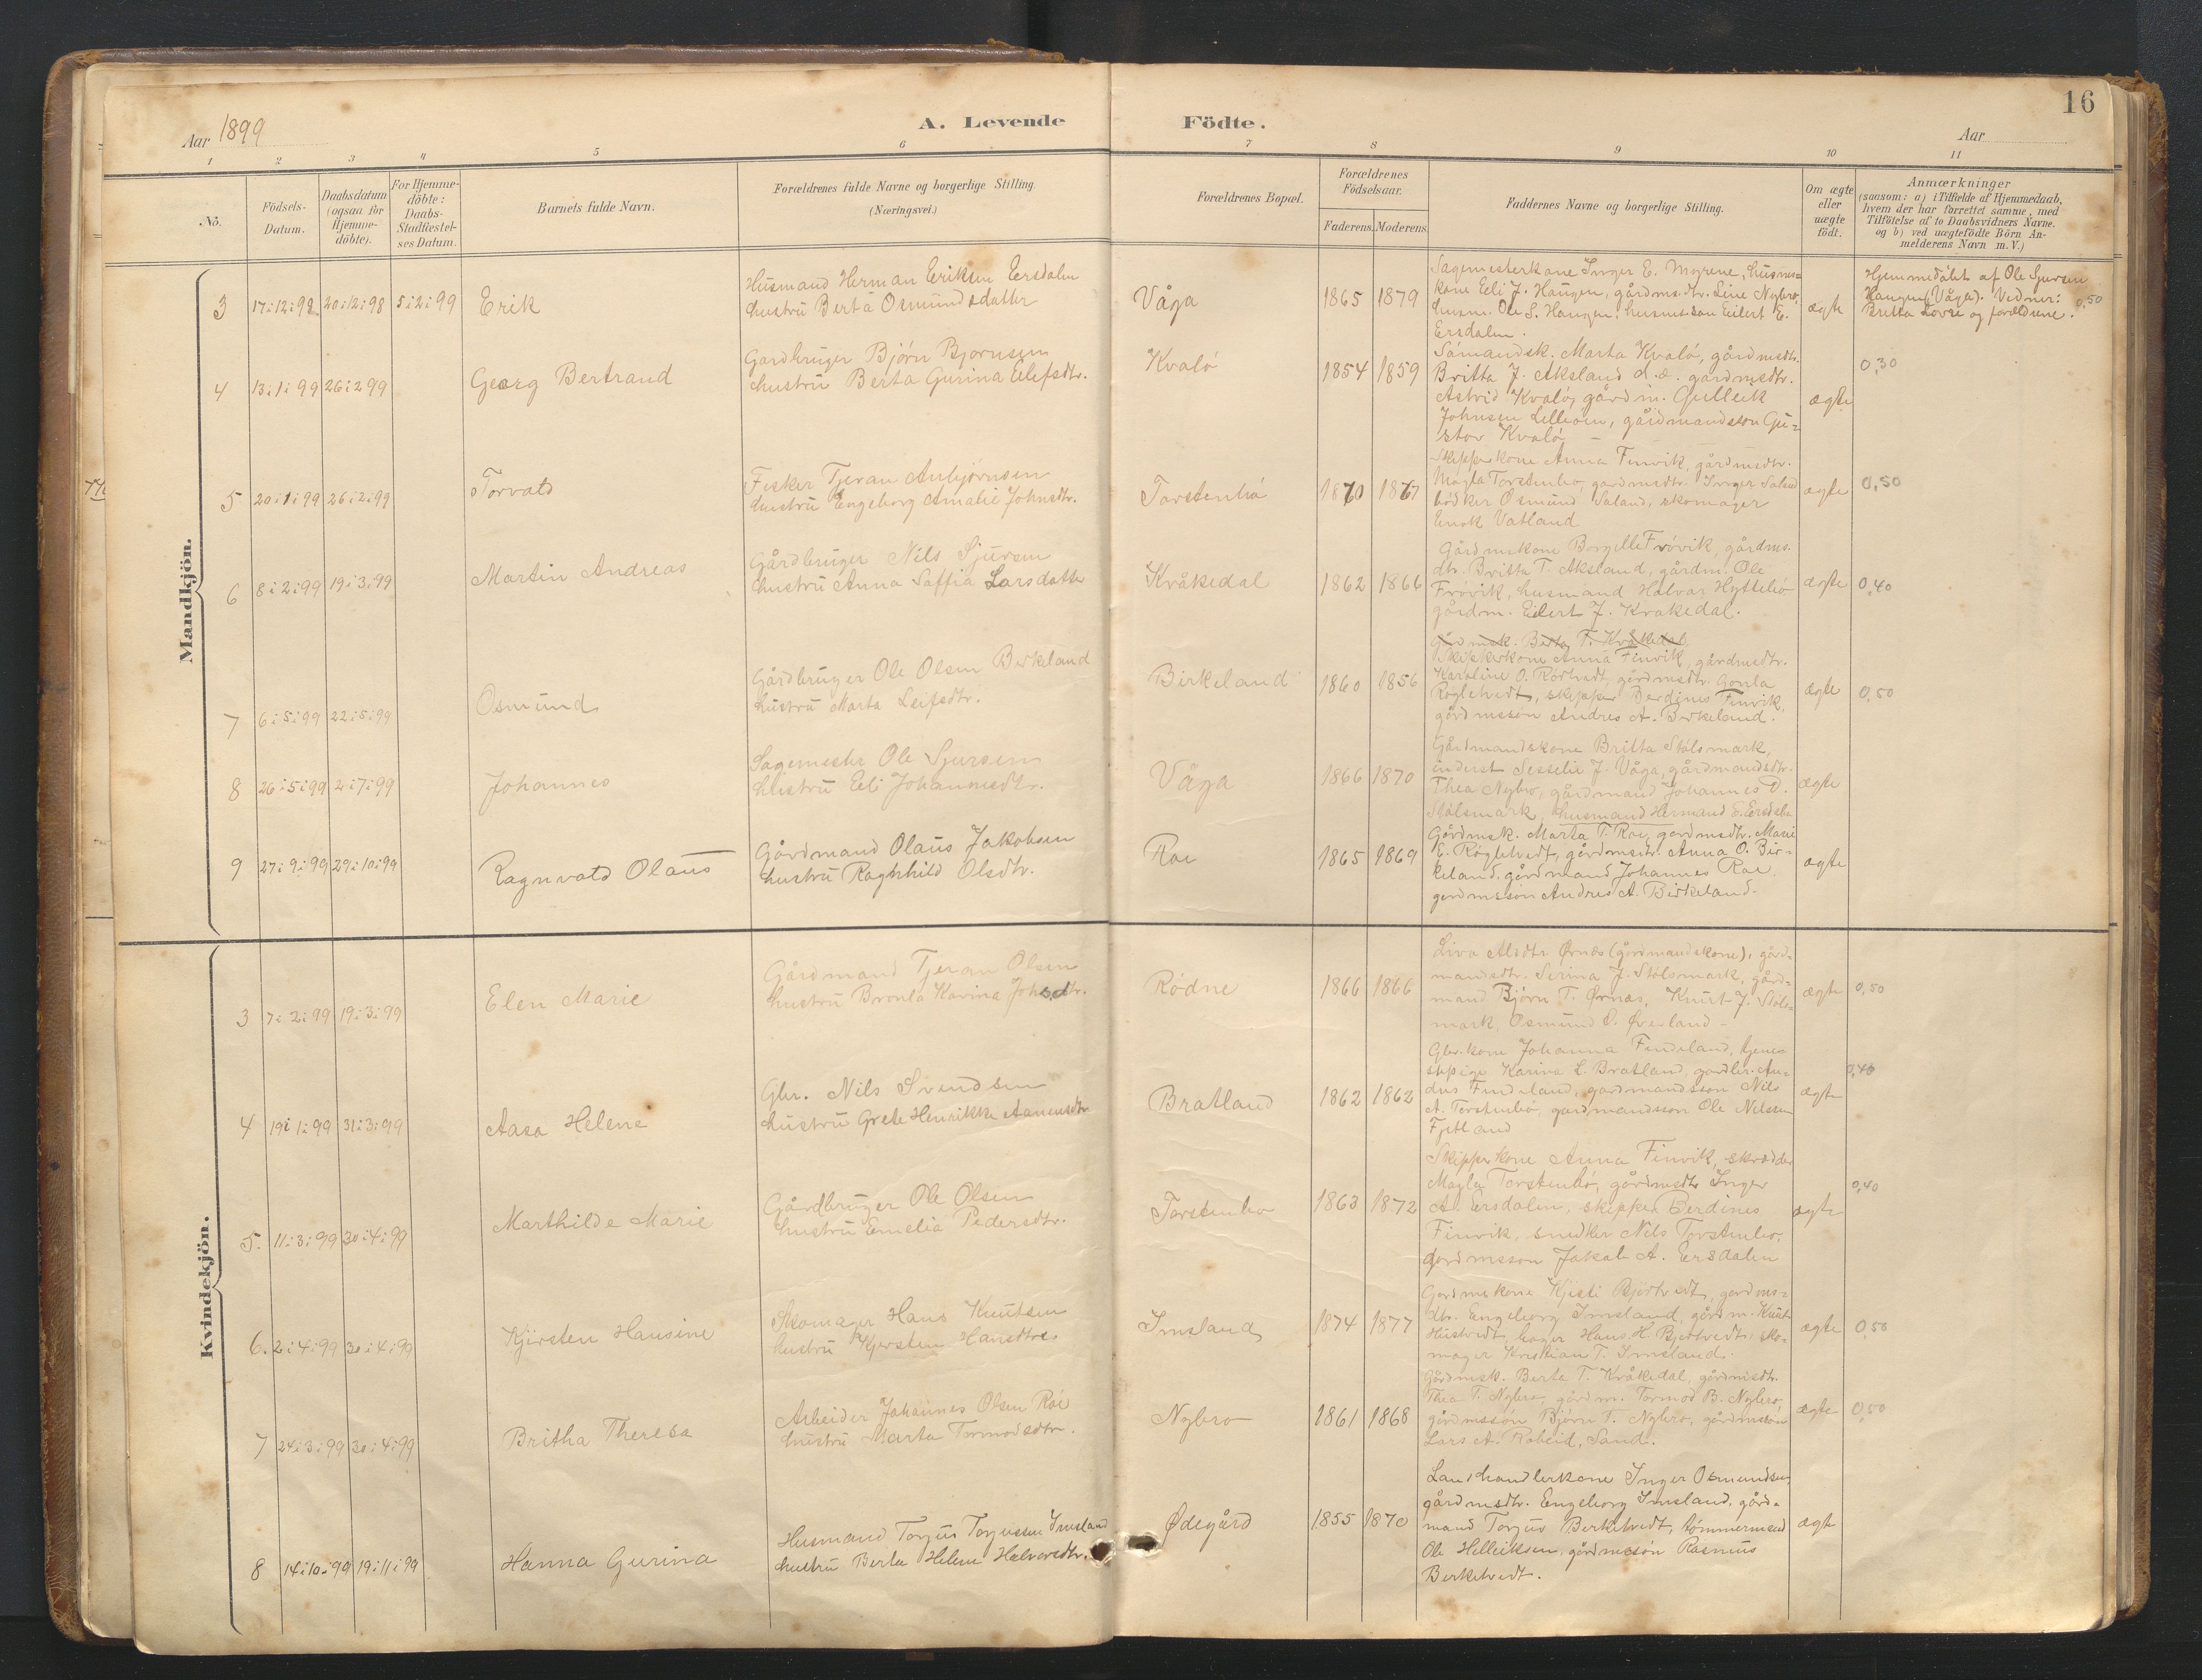 16
Aar 1899
A. Levende Födte.
Aar
1 2 3 4 5 6 7 8 9 10 11
No.
Födsels-
Datum.
Daabsdatum
(ogsaa for
Hjemme-
döbte).
For Hjemme-
döbte:
Daabs-
Stadfæstel-
ses Datum.
Barnets fulde Navn.
Forældrenes fulde Navne og borgerlige Stilling.
(Næringsvei.)
Forældrenes Bopæl.
Forældrenes
Födselsaar.
Faderens. Moderens.
Faddernes Navne og borgerlige Stilling.
Om ægte
eller
uægte
födt.
Anmærkninger
(saasom: a) i Tilfælde af Hjemmedaab,
hvem der har forrettet samme, med
Tilföielse af to Daabsvidners Navne.
og b) ved uægtefödte Börn An-
melderens Navn m. V.)
Mandkjön.
3 17:12:98 20:12:98 5:2:99 Erik
Husmand Herman Eriksen Eersdalen
hustru Berta Osmundsdatter
Våga 1865 1879
Sagemesterkone Inger E. Morene, husms-
kone Eeli J. Haugen, gårdms.dtr. Line Nybro,
husm. Ole S. Haugen, husms.søn Eilert E.
Ersdalen.
ægte
Hjemmedøbt af Ole Sjursen
Haugen (Våga). Vidner:
Britta Lovre og forældrene. 0,50
4 13:1:99 26:2:99 Georg Bertrand
Gardbruger Bjørn Bjornsen
hustru Berta Gurina Eilefsdtr.
Kvalø 1854 1859
Sømandsk. Marta Kvalø, gårdmsdtr.
Britta J. Aksland d.æ. gårdmsdtr.
Astrid Kvalø, gårdm. Gulleik
Johnsen Lillioen, gårdmandssøn Gu-
stav Kvalø —
ægte 0,30
5 20:1:99 26:2:99 Torvald
Fisker Tjeran Anbjørnsen
hustru Engeborg Amalie Johnsdtr.
Torstenbø 1870 1867
Skipperkone Anna Finvik, gårdmsdtr.
Magla Torstenbø, gardmsdtr. Inger Saland
bødker Osmund Saland, skomager
Enok Vatland
ægte 0,50
6 8:2:99 19:3:99 Martin Andreas
Gårdbruger Nils Sjursen
hustru Anna Saffia Larsdatter
Kråkedal 1862 1866
Gårdmskone Borgille Frøvik, gårdms.
dtr. Britta T. Aksland, gårdm. Ole
Frøvik, husmand Halvar Hyttebø
gårdm. Eilert J. Krakedal.
ægte 0,40
7 6:5:99 22:5:99 Osmund
Gårdbruger Ole Olsen Birkeland
hustru Marta Leifsdtr.
Birkeland 1860 1856
Gårdmsk. Berta T. Kråkedal
Skipperkone Anna Finvik, gårdmsdtr.
Karoline O. Rørtvedt, gårdmsdtr. Gonla
Røgletvedt, skipper Berdines Finvik,
gårdmssøn Andres A. Birkeland.
ægte 0,50
8 26:5:99 2:7:99 Johannes
Sagemester Ole Sjursen
hustru Eeli Johannesdtr.
Våga 1866 1870
Gårdmandskone Britta Stålsmark,
inderst Sesselie J. Våga, gårdmandsdtr.
Thea Nybro, gårdmand Johannes D.
Stålsmark, husmand Hermand E. Eersdalen
ægte
9 27:9:99 29:10:99 Ragnvald Olaus
Gårdmand Olaus Jakobsen
hustru Ragnhild Olsdtr.
Roe 1865 1869
Gårdmsk. Marta T. Roe, gardmsdtr. Marie
E. Røgletvedt, gårdmsdtr. Anna O. Bir-
keland, gårdmand Johannes Roe
gårdmssøn Andres A. Birkeland.
ægte
Kvindekjön.
3 7:2:99 19:3:99 Elen Marie
Gårdmand Tjeran Olsen
hustru Bronla Karina Johnsdtr.
Rødne 1866 1866
Liva Alsdtr Ørnæs (gårdmandskone), gård-
mandsdtr. Serina J. Stålsmark, gård-
mand Bjørn T. Ørnæs, Knut J. Ståls-
mark, Osmund O. Øverland —
ægte 0,50
4 19:1:99 31:3:99 Aasa Helene
Gbr. Nils Svendsen
hustru Grete Henrikke Aanensdtr
Bratland 1862 1862
Gbr.kone Johanna Findeland, tjene-
stpige Karina L. Bratland, gardbr. An-
dres Findeland, gardmandssøn Nils
A. Torstenbø, gardmandssøn Ole Nilssen
Fjetland
ægte 0,40
5. 11:3:99 30:4:99 Marthilde Marie
Gårdbruger Ole Olsen
hustru Emelia Pedersdtr.
Torstenbø 1863 1872
Skipperkone Anna Finvik, skrædder
Magla Torstenbø, gårdmsdtr Inger
A. Ersdalen, skipper Berdines
Finvik, snedker Nils Torstenbø,
gårdmssøn Jakob A. Ersdalen
ægte 0,40
6. 2:4:99 30:4:99 Kjirsten Hansine
Skomager Hans Knutsen
hustru Kjersten Hansdtr
Imsland 1874 1877
Gardmskone Kjesti Bjortvedt, gardms-
dtr. Engeborg Imsland, gårdm. Knut
Hustvedt, bager Hans H. Bjortvedt, sko-
mager Kristian T. Imsland.
ægte 0,50
7 24:3:99 30:4:99 Britha Theresa
Arbeider Johannes Olsen Roe
hustru Marta Tormodsdtr.
Nybro 1861 1868
Gårdmsk. Berta T. Kråkedal, gårdmsdtr.
Thea T. Nybro, gårdm. Tormod B. Nybro,
gårdmssøn Bjørn T. Nybro, gårdmssøn
Lars A. Røheid, Sand.
ægte 0,50
8 14:10:99 19:11:99 Hanna Gurina
Husmand Torjus Torjussen Imsland
hustru Berta Helene Halvorsdtr.
Ødegård 1855 1870
Landhandlerkone Inger Osmundsen,
gårdmsdtr. Engeborg Imsland, gård-
mand Torjus Berketvedt, tømmermand
Ole Helleiksen, gårdmssøn Rasmus
Berketvedt.
ægte